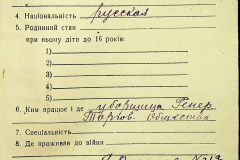 4. Національність русская
5. Родинний стан
при ньому діти до 16 років:
1)
2)
3)
4)
5)
6. Ким працює і де уборщица Генер
Торгов. Общества
7. Спеціальність
8. Де проживав до війни